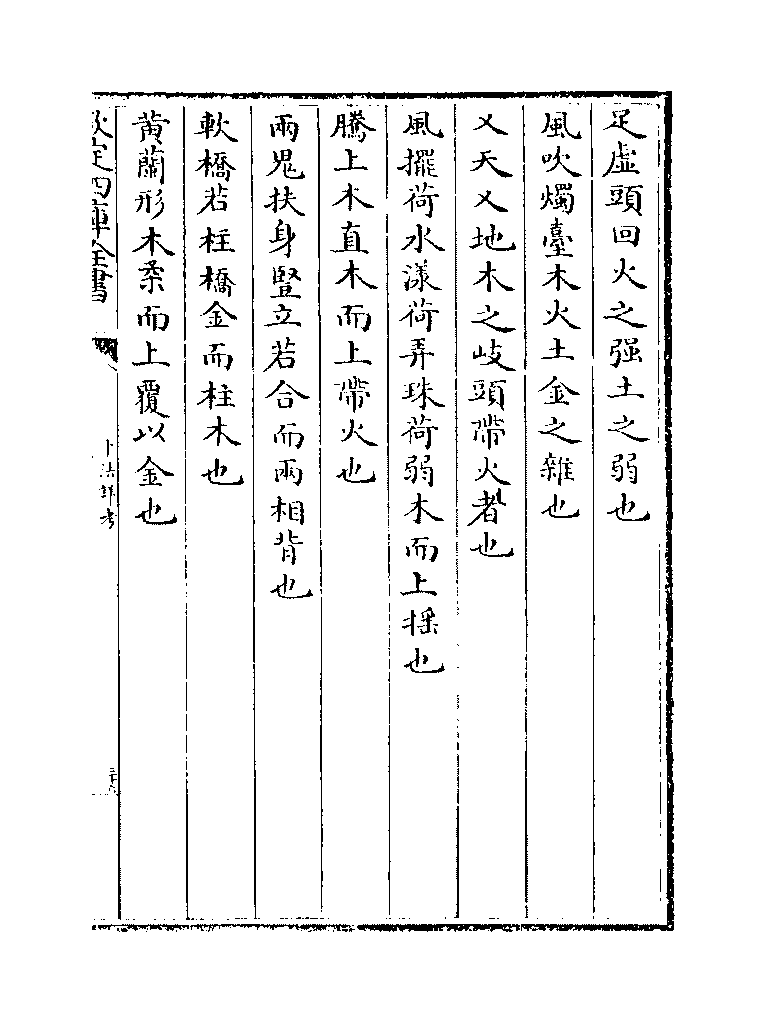 足虛頭回火之强土之弱也
風吹燭臺木火土金之雜也
乂天乂地木之岐頭帶火者也
風擺荷水漾荷弄珠荷弱木而上揺也
騰上木直木而上帶火也
兩鬼扶身豎立若合而兩相背也
軟橋若柱橋金而柱木也
黄蘭形木柔而上覆以金也
欽定四庫全書
卜法詳考
二十六